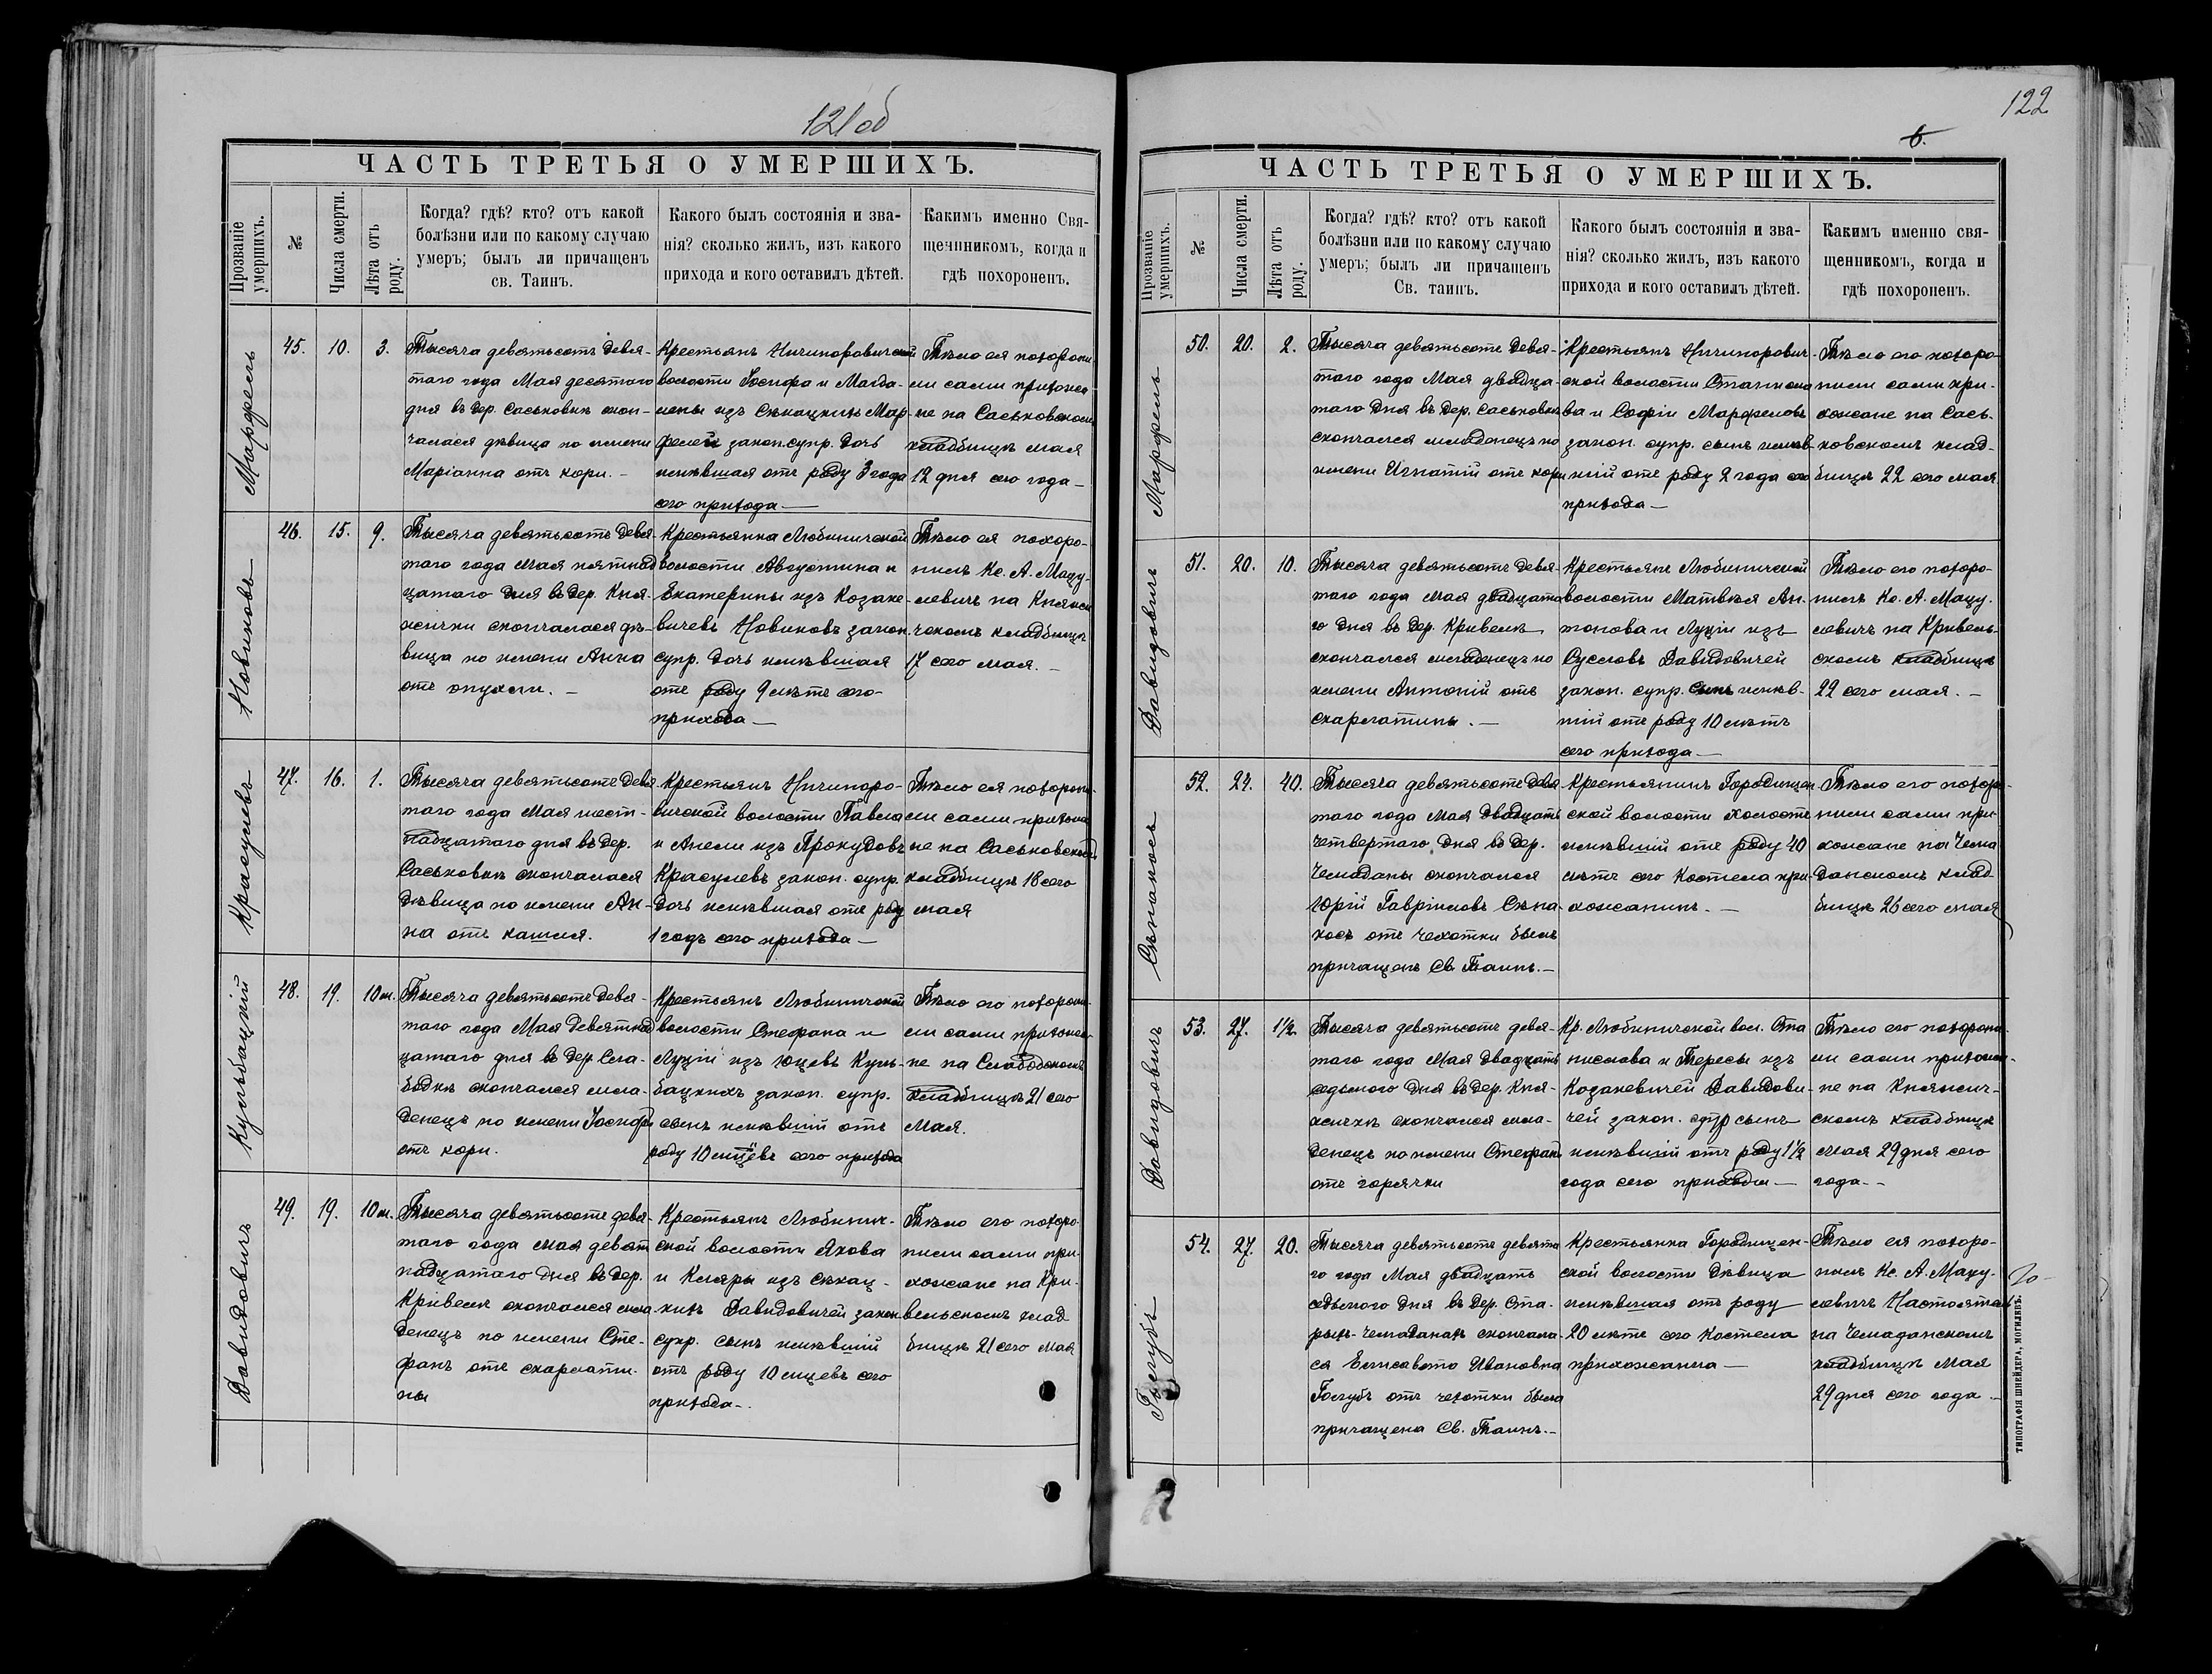 121 об
ЧАСТЬ ТРЕТЬЯ О УМЕРШИХЪ.
Прозваніе умершихъ.
№
Числа смерти.
Лѣта отъ роду.
Когда? гдѣ? кто? отъ какой
болѣзни или по какому случаю
умеръ; былъ ли причащенъ
св. Таинъ.
Какого былъ состоянія и зва-
нія? сколько жилъ, изъ какого
прихода и кого оставилъ дѣтей.
Какимъ именно Свя-
щенникомъ, когда и
гдѣ похороненъ.
Марфель
45. 10. 3.
Тысяча девятьсотъ девя-
таго года Мая десятаго
дня въ дер. Саськовкѣ скон-
чалася дѣвица по имени
Маріанна отъ кори. -
Крестьянъ Ничипоровичской
волости Іосифа и Магда-
лены изъ Сѣкацкихъ Мар-
фелей закон. супр. дочь
жившая отъ роду 3 года
сего прихода —
Тѣло ея похорони-
ли сами прихожа-
не на Саськовскомъ
кладбищѣ мая
12 дня сего года -
Новиковъ
46. 15. 9.
Тысяча девятьсотъ девя-
таго года мая пятнад-
цатаго дня въ дер. Кня-
жички скончалася дѣ-
вица по имени Анна
отъ опухли. -
Крестьянка Любиничской
волости Августина и
Екатерины изъ Козаке-
вичевъ Новиковъ закон.
супр. дочь жившая
отъ роду 9 лѣтъ сего
прихода —
Тѣло ея похоро-
нилъ Кс. А. Мацу-
левичъ на Княжи-
чскомъ кладбищѣ
17 сего мая. -
Красулевъ
47. 16. 1.
Тысяча девятьсотъ девя
таго года Мая шест-
надцатаго дня въ дер.
Саськовкѣ скончалася
дѣвица по имени Ан-
на отъ кашля.
Крестьянъ Ничипоро-
вичской волости Павла
и Анели изъ Прокудовъ
Красулевъ закон. супр.
дочь жившая отъ роду
1 годъ сего прихода —
Тѣло ея похорони-
ли сами прихожа
не на Саськовскомъ
кладбищѣ 18 сего
мая
Кульбацкій
48. 19. 10 м.
Тысяча девятьсотъ девя-
таго года Мая девятнад
цатаго дня въ дер. Сла-
бодкѣ скончался мла-
денецъ по имени Іосифъ
отъ кори.
Крестьянъ Любиничской
волости Стефана и
Луціи изъ Юцевъ Куль-
бацкихъ закон. супр.
сынъ жившій отъ
роду 10 м-цевъ сего прихода
Тѣло его похорони-
ли сами прихожа-
не на Слабодскомъ
кладбищѣ 21 сего
Мая.
Давидовичъ
49. 19. 10 м.
Тысяча девятьсотъ девя-
таго года мая девят-
надцатаго дня въ дер.
Кривелѣ скончался мла-
денецъ по имени Сте-
фанъ отъ скарлати-
ны
Крестьянъ Любинич-
ской волости Якова
и Кляры изъ Сѣкац-
кихъ Давидовичей закон
супр. сынъ жившій
отъ роду 10 м-цевъ сего
прихода -.
Тѣло его похоро-
нили сами при-
хожане на Кри-
вельскомъ клад
бищѣ 21 сего мая
122
6.
ЧАСТЬ ТРЕТЬЯ О УМЕРШИХЪ.
Прозваніе умершихъ.
№
Числа смерти.
Лѣта отъ роду.
Когда? гдѣ? кто? отъ какой
болѣзни или по какому случаю
умеръ; былъ ли причащенъ
Св. таинъ.
Какого былъ состоянія и зва-
нія? сколько жилъ, изъ какого
прихода и кого оставилъ дѣтей.
Какимъ именно свя-
щенникомъ, когда и
гдѣ похороненъ.
Марфель
50. 20. 2.
Тысяча девятьсотъ девя-
таго года Мая двадца-
таго дня въ дер. Саськовкѣ
скончался младенецъ по
имени Игнатій отъ кори
Крестьянъ Ничипорович-
ской волости Станисла
ва и Софіи Марфелевъ
закон. супр. сынъ жив-
шій отъ роду 2 года сего
прихода —
Тѣло его похоро-
нили сами при-
хожане на Сась-
ковскомъ клад-
бищѣ 22 сего мая
Давидовичъ
51. 20. 10.
Тысяча девятьсотъ девя-
таго года мая двадцата
го дня въ дер. Кривелѣ
скончался младенецъ по
имени Антоній отъ
скарлатины. -
Крестьянъ Любиничской
волости Матвѣя Ан-
тонова и Луціи изъ
Сусловъ Давидовичей
закон. супр. сынъ жив-
шій отъ роду 10 лѣтъ
сего прихода —
Тѣло его похоро-
нилъ Кс. А. Мацу-
левичъ на Кривель-
скомъ кладбищѣ
22 сего мая. -
Сѣнокосъ
52. 24. 40.
Тысяча девятьсотъ девя
таго года мая двадцать
четвертаго дня въ дер.
Чемаданы скончался
Юрій Гавріиловъ Сѣно-
косъ отъ чахотки былъ
причащенъ Св. Таинъ. -
Крестьянинъ Городищен
ской волости холостъ
жившій отъ роду 40
лѣтъ сего Костела при-
хожанинъ. -
Тѣло его похоро-
нили сами при-
хожане на Чема
данскомъ клад-
бищѣ 26 сего мая
Давидовичъ
53. 27. 1½.
Тысяча девятьсотъ девя-
таго года Мая двадцать
седьмого дня въ дер. Кня-
жичкѣ скончался мла-
денецъ по имени Стефанъ
отъ горячки
Кр. Любиничской вол. Ста
нислава и Тересы изъ
Козакевичей Давидови-
чей закон. супр сынъ
жившій отъ роду 1½
года сего прихода —
Тѣло его похорони-
ли сами прихожа-
не на Княжич-
скомъ кладбищѣ
мая 29 дня сего
года. -
Голубъ
54. 27. 20.
Тысяча девятьсотъ девята
го года Мая двадцать
седьмого дня въ дер. Ста-
рыхъ-Чемаданахъ скончала-
ся Елисавета Ивановна
Голубъ отъ чахотки была
причащена Св. Таинъ. -
Крестьянка Городищен-
ской волости дѣвица
жившая отъ роду
20 лѣтъ сего Костела
прихожанка —
Тѣло ея похоро-
нилъ Кс. А. Мацу-
левичъ Настоятель
на Чемаданскомъ
кладбищѣ мая
29 дня сего года -
ТИПОГРАФІЯ ШНЕЙДЕРА, МОГИЛЕВЪ.